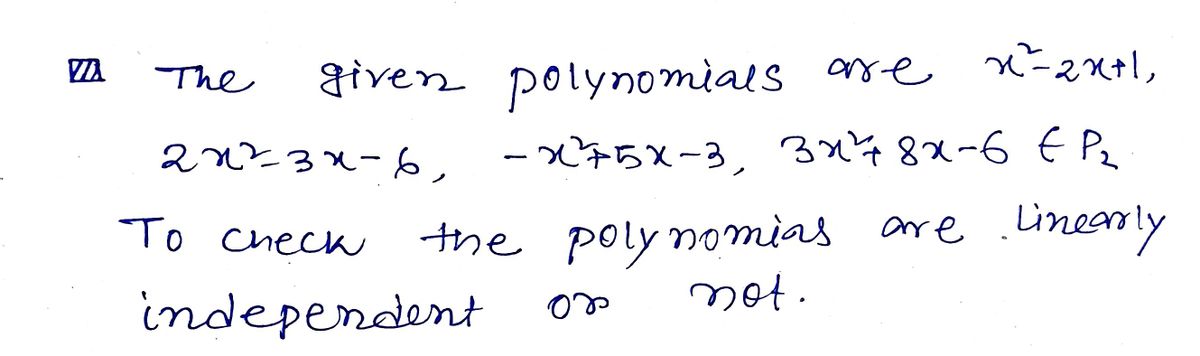 The given polynomials are x²-2x+1,
2x²-3x-6, -x²+5x-3, 3x²+8x-6 ∈ P₂
To check the polynomias are linearly
independent or not.